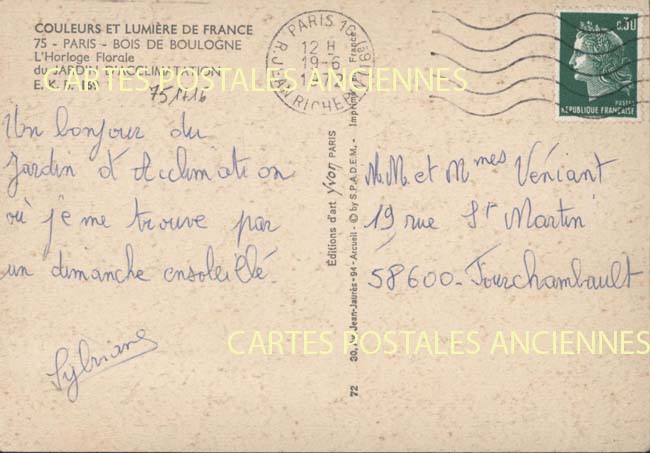 COULEURS ET LUMIÈRE DE FRANCE
75 - PARIS - BOIS DE BOULOGNE
L'Horloge Florale
du JARDIN D'ACCLIMATION
CARTES POSTALES ANCIENNES
751716
Un bonjour du
Jardin d'Acclimation
où je me trouve par
un dimanche ensoleillé.
Sylviane
PARIS 16
12 H
19-6
R. JEAN RICHEPIN
0,30
POSTES
RÉPUBLIQUE FRANÇAISE
Éditions d'art yvon PARIS
72 30, Av. Jean-Jaurès - 94 - Arcueil - © by S.P.A.D.E.M. - Imprimé en France
M.M. et Mmes Véniant
19 rue St Martin
58600 - Fourchambault
CARTES POSTALES ANCIENNES